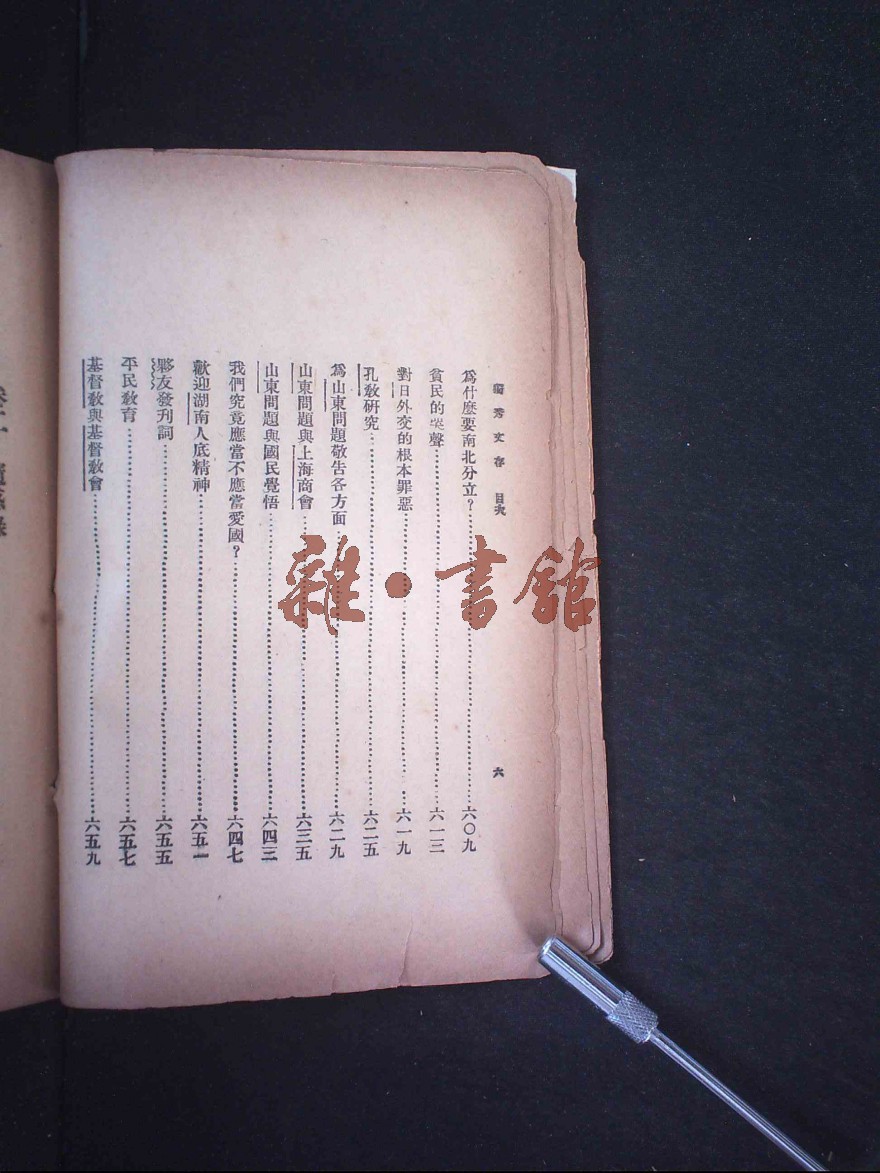 獨秀文存 目次 六
爲什麼要南北分立？……六〇九
貧民的哭聲……六一三
對日外交的根本罪惡……六一九
孔敎硏究……六二五
爲山東問題敬告各方面……六二九
山東問題與上海商會……六三五
山東問題與國民覺悟……六四三
我們究竟應當不應當愛國？……六四七
歡迎湖南人底精神……六五一
夥友發刊詞……六五五
平民敎育……六五七
基督敎與基督敎會……六五九
雜·書館